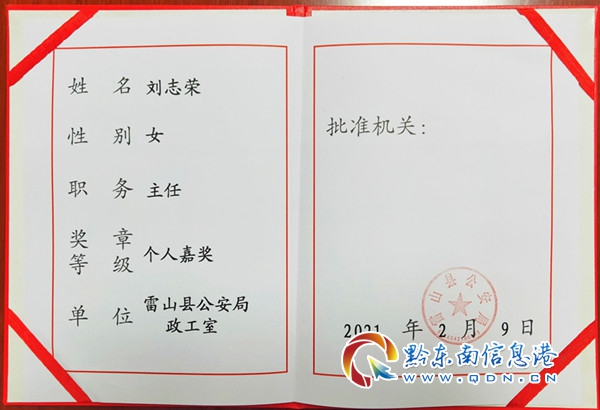 姓 名 刘志荣
性 别 女
职 务 主任
奖 章
等 级 个人嘉奖
单 位 雷山县公安局
政工室
批准机关：
雷山县公安局
2021 年 2 月 9 日
黔东南信息港
WWW.QDN.CN